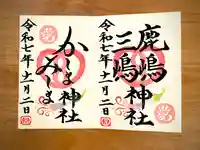 鹿嶋
三嶋
神社
令和七年十一月二日
かしま
みしま
神社
令和七年十一月二日